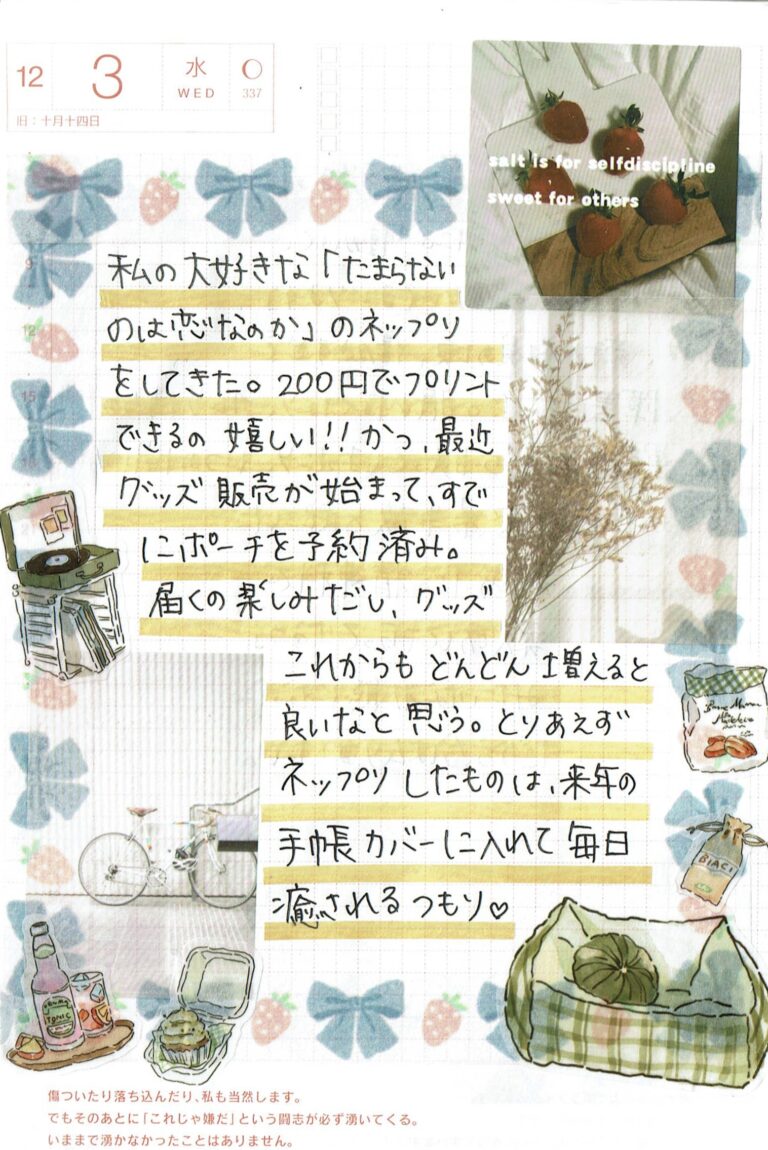 12
3
水
WED
337
旧：十月十四日
salt is for selfdiscipline
sweet for others
9
12
15
私の大好きな「たまらない
のは恋なのか」のネップリ
をしてきた。200円でプリント
できるの嬉しい!!かつ、最近
グッズ販売が始まって、すで
にポーチを予約済み。
届くの楽しみだし、グッズ
これからもどんどん増えると
良いなと思う。とりあえず
ネップリしたものは、来年の
手帳カバーに入れて毎日
癒されるつもり♡
Bonne Maman
TONIC
傷ついたり落ち込んだり、私も当然します。
でもそのあとに「これじゃ嫌だ」という闘志が必ず湧いてくる。
いままで湧かなかったことはありません。